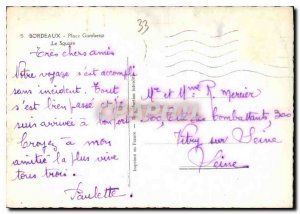 5 BORDEAUX - Place Gambetta
Le Square
33
Très chers amis
Votre voyage s'est accompli
sans incident. Tout
s'est bien passé et je
suis arrivée à bon port
Croyez à mon
amitié la plus vive
tous trois.
Paulette.
Mr et Mme R. Mercier
300, Rue des Combattants, 300
Vitry sur Seine
Seine